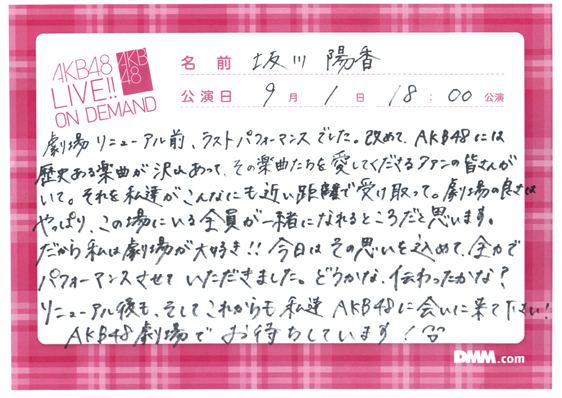 AKB48
LIVE!!
ON DEMAND
AKB
48
名前 坂川 陽香
公演日 9月1日 18:00公演
劇場リニューアル前、ラストパフォーマンスでした。改めて、AKB48には
歴史ある楽曲が沢山あって、その楽曲たちを愛してくださるファンの皆さんが
いて。それを私達がこんなにも近い距離で受け取って。劇場の良さは
やっぱり、この場にいる全員が一緒になれるところだと思います。
だから私は劇場が大好き!! 今日はその思いを込めて、全力で
パフォーマンスさせていただきました。どうかな、伝わったかな?
リニューアル後も、そしてこれからも私達AKB48に会いに来て下さい!
AKB48劇場でお待ちしています!
DMM.com